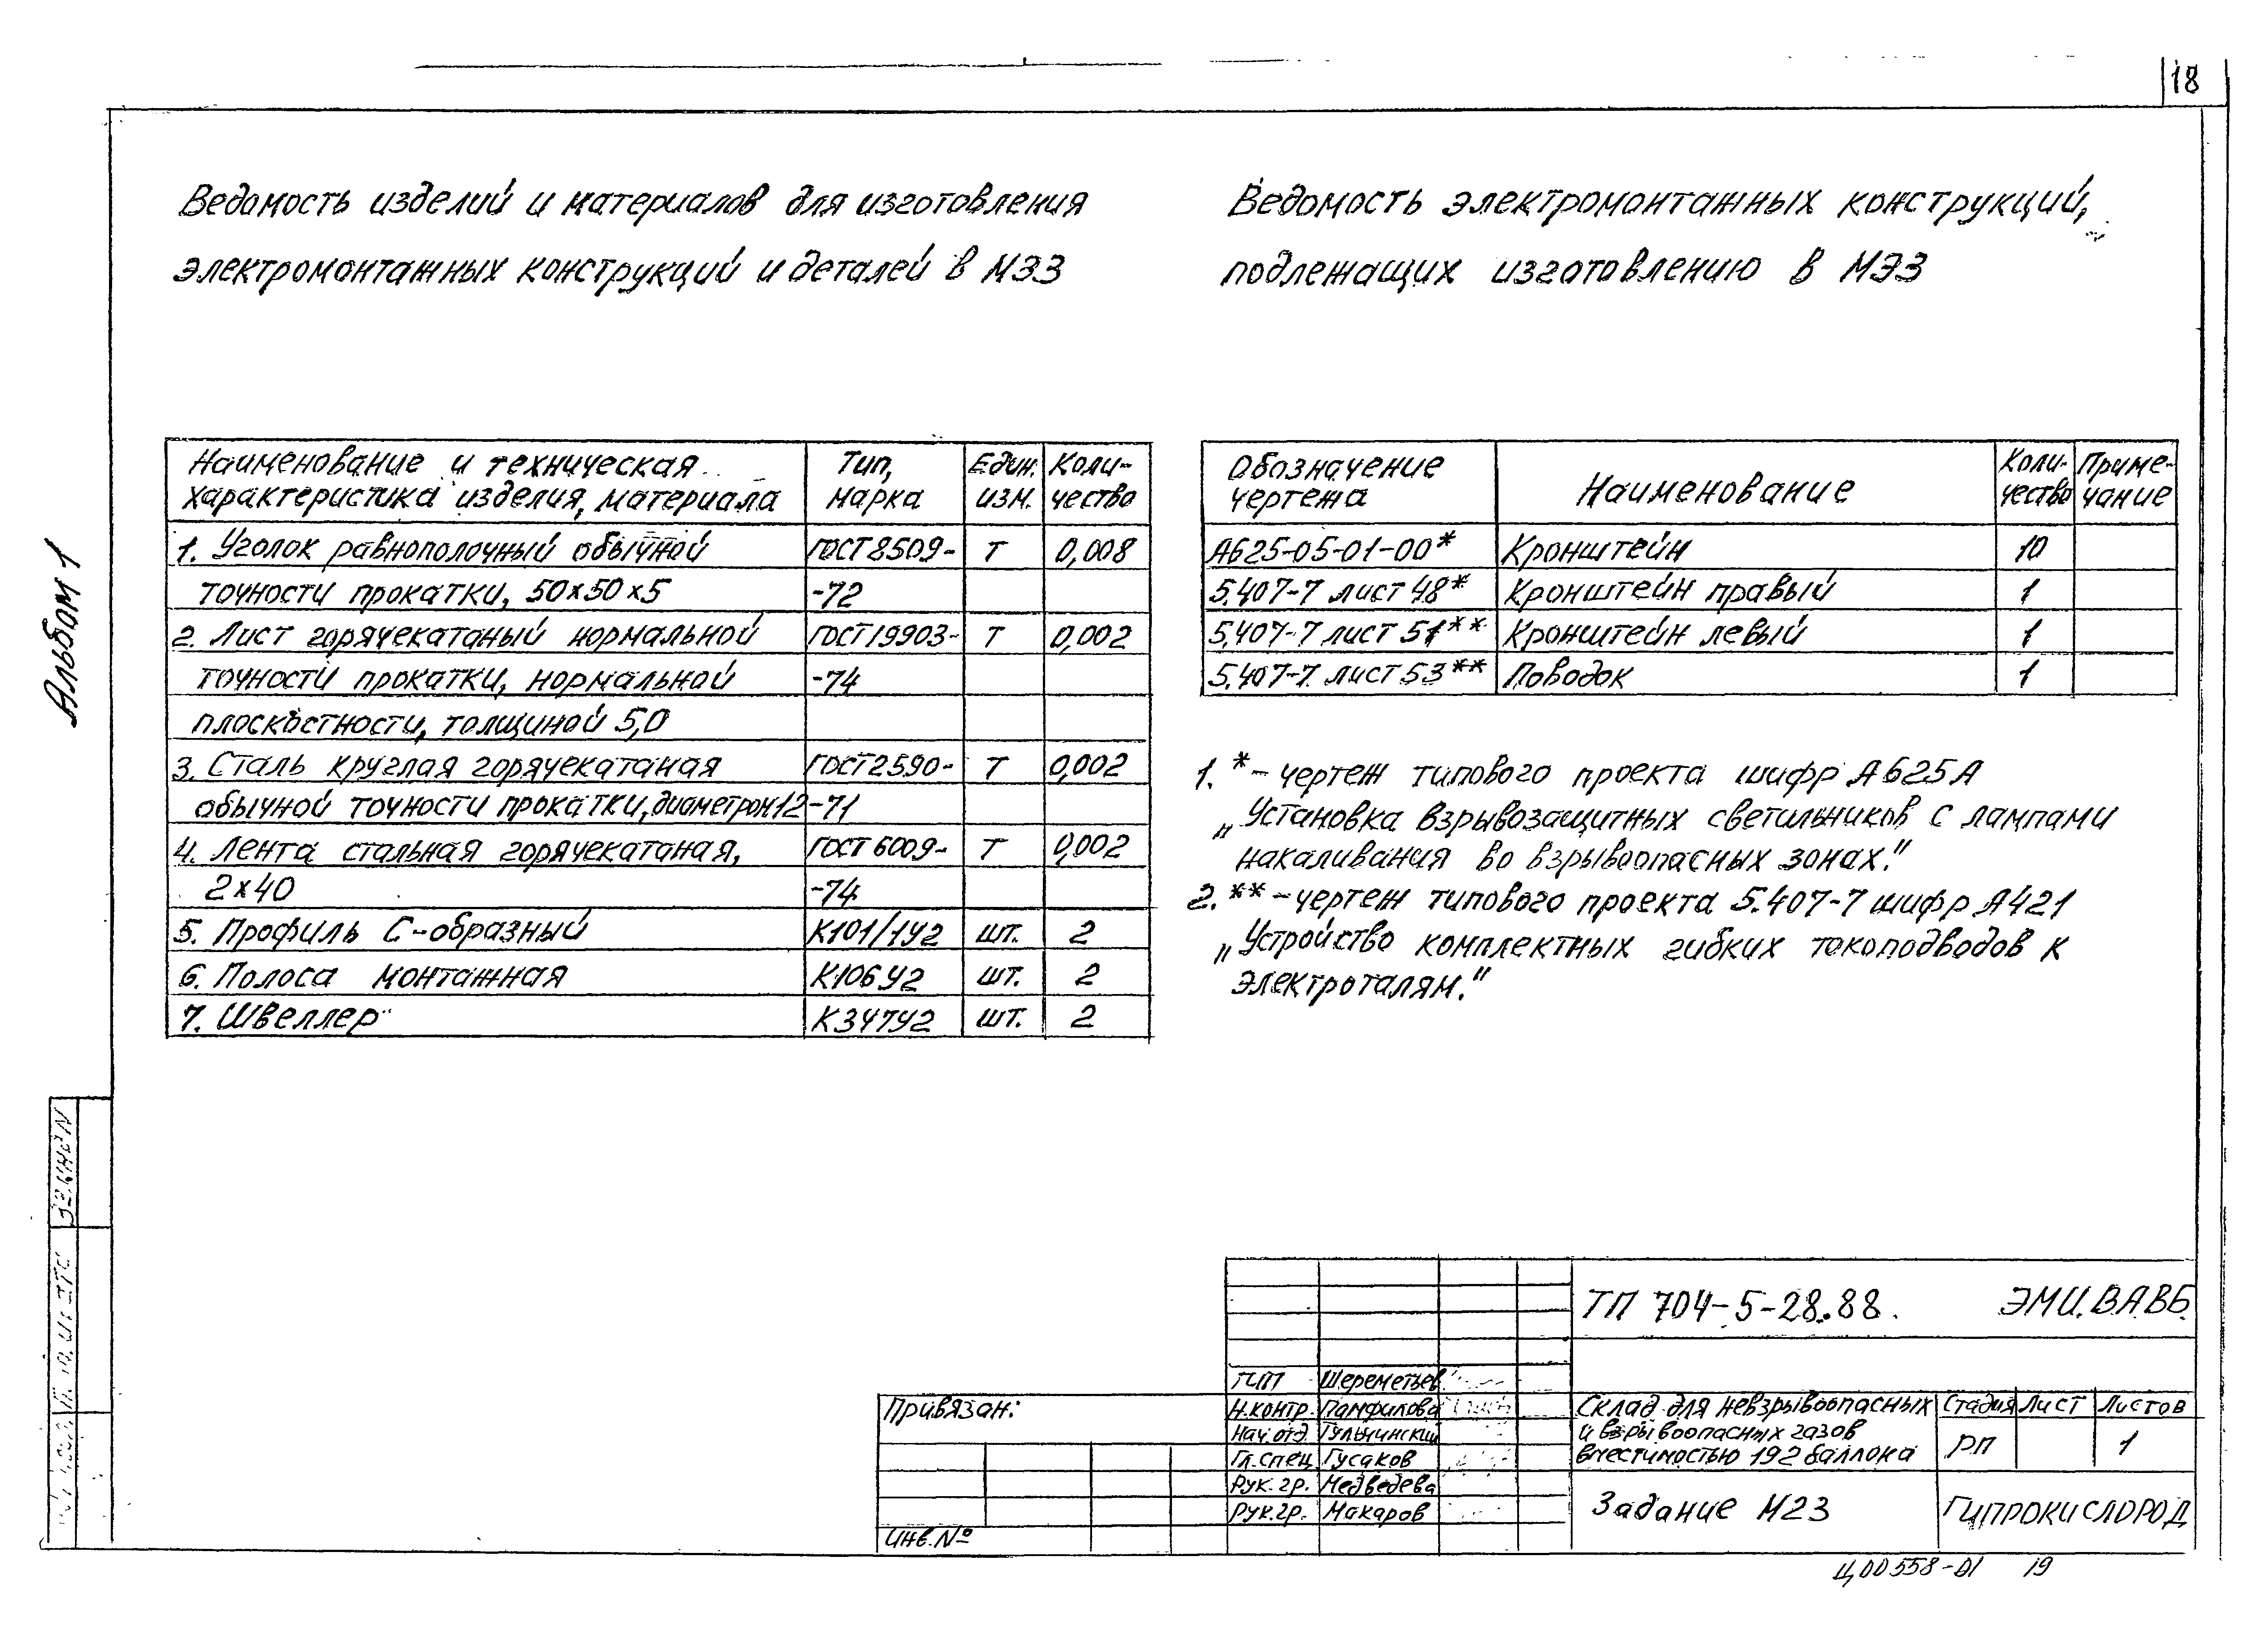 18
Альбом 1
Ведомость изделий и материалов для изготовления
электромонтажных конструкций и деталей в МЭЗ
Наименование и техническая характеристика изделия, материала | Тип, марка | Един. изм. | Коли-чество
1. Уголок равнополочный обычной | ГОСТ 8509- | Т | 0,008
точности прокатки, 50х50х5 | -72
2. Лист горячекатаный нормальной | ГОСТ 19903- | Т | 0,002
точности прокатки, нормальной | -74
плоскостности, толщиной 5,0
3. Сталь круглая горячекатаная | ГОСТ 2590- | Т | 0,002
обычной точности прокатки, диаметром 12 | -71
4. Лента стальная горячекатаная, | ГОСТ 6009- | Т | 0,002
2х40 | -74
5. Профиль С-образный | К101/1У2 | шт. | 2
6. Полоса монтажная | К106У2 | шт. | 2
7. Швеллер | К347У2 | шт. | 2
Ведомость электромонтажных конструкций,
подлежащих изготовлению в МЭЗ
Обозначение чертежа | Наименование | Коли-чество | Приме-чание
А625-05-01-00* | Кронштейн | 10
5.407-7 лист 48* | Кронштейн правый | 1
5.407-7 лист 51** | Кронштейн левый | 1
5.407-7 лист 53** | Поводок | 1
1. * - чертеж типового проекта шифр А625А
„Установка взрывозащитных светильников с лампами
накаливания во взрывоопасных зонах."
2. ** - чертеж типового проекта 5.407-7 шифр А421
„Устройство комплектных гибких токоподводов к
электроталям."
ТП 704-5-28.88. ЭМИ.ВАВБ
ГИП Шереметьев
Н.контр. Памфилова
Нач.отд. Гульчинский
Гл.спец Гусаков
Рук.гр. Медведева
Рук.гр. Макаров
Привязан:
Инв.№
Склад для невзрывоопасных
и взрывоопасных газов
вместимостью 192 баллона
Стадия Лист Листов
РП 1
Задание МЭЗ
ГИПРОКИСЛОРОД
Ц00558-01 19